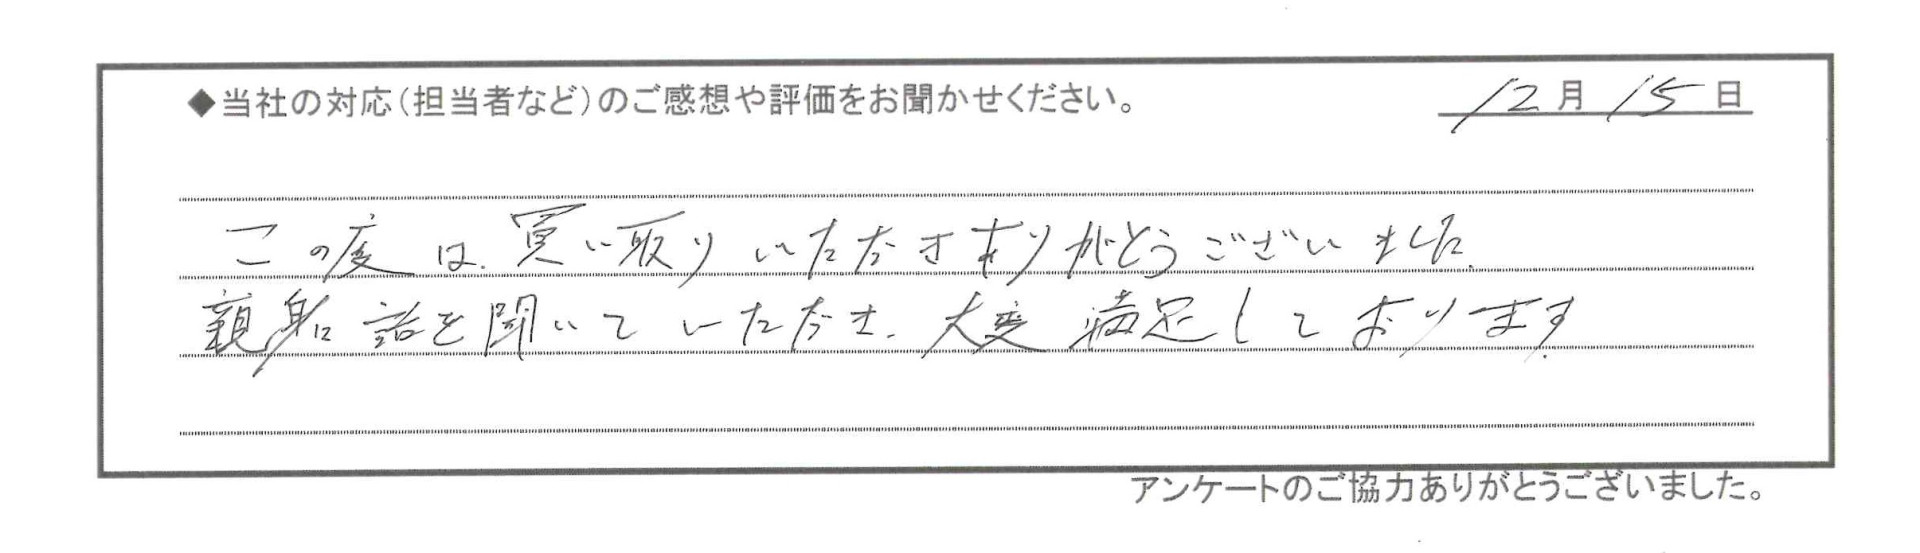 ◆当社の対応(担当者など)のご感想や評価をお聞かせください。 12月15日
この度は、買い取りいただきありがとうございました。
親身に話を聞いていただき、大変満足しております。
アンケートのご協力ありがとうございました。